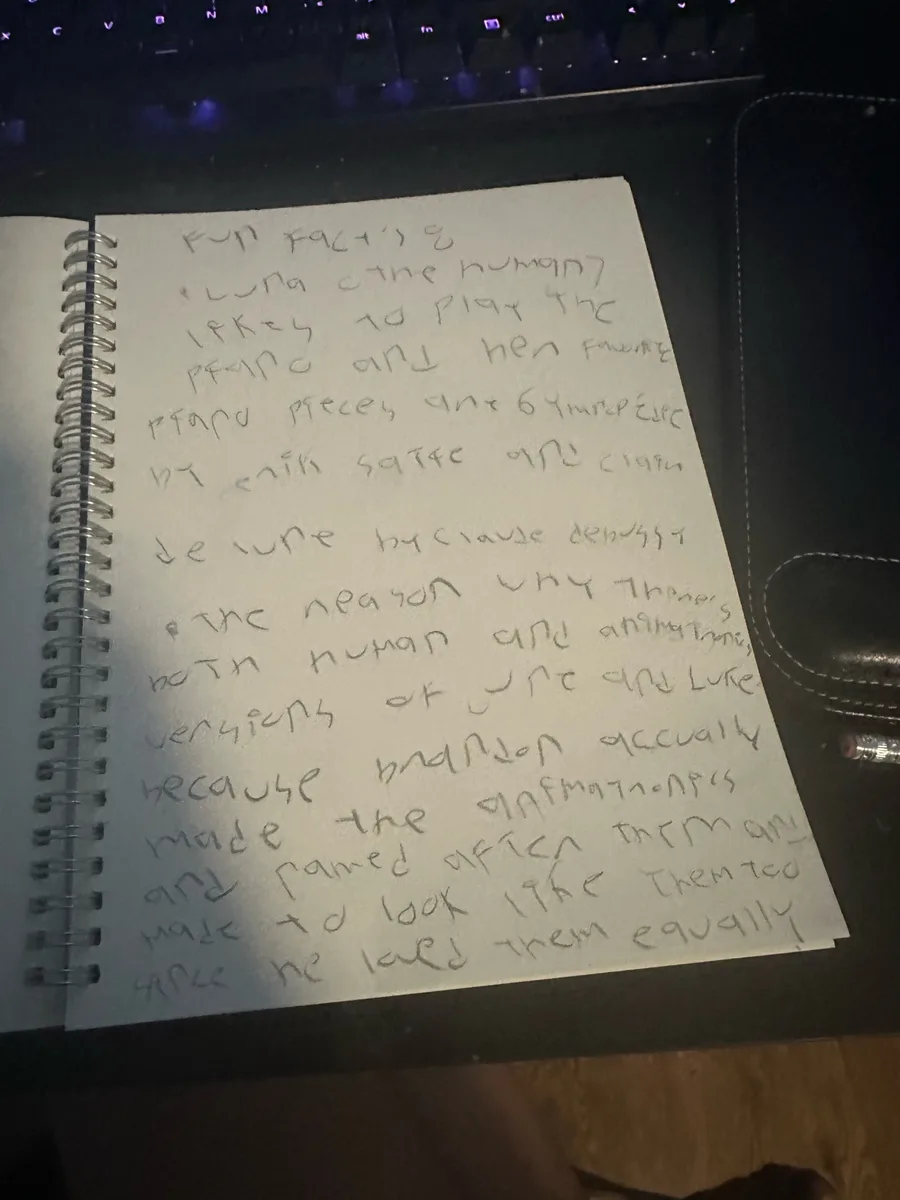 X C V B N M alt fn ctrl
Fun Fact's 8
• Luna (the human)
likes to play the
piano and her favorite
piano pieces are Gymnopédie
by erik satie and clair
de lune by Claude debussy
• the reason why there's
both human and animatronics
versions of June and Luke
because brandon accually
made the animatronics
and named after them and
made to look like them too
since he loved them equally